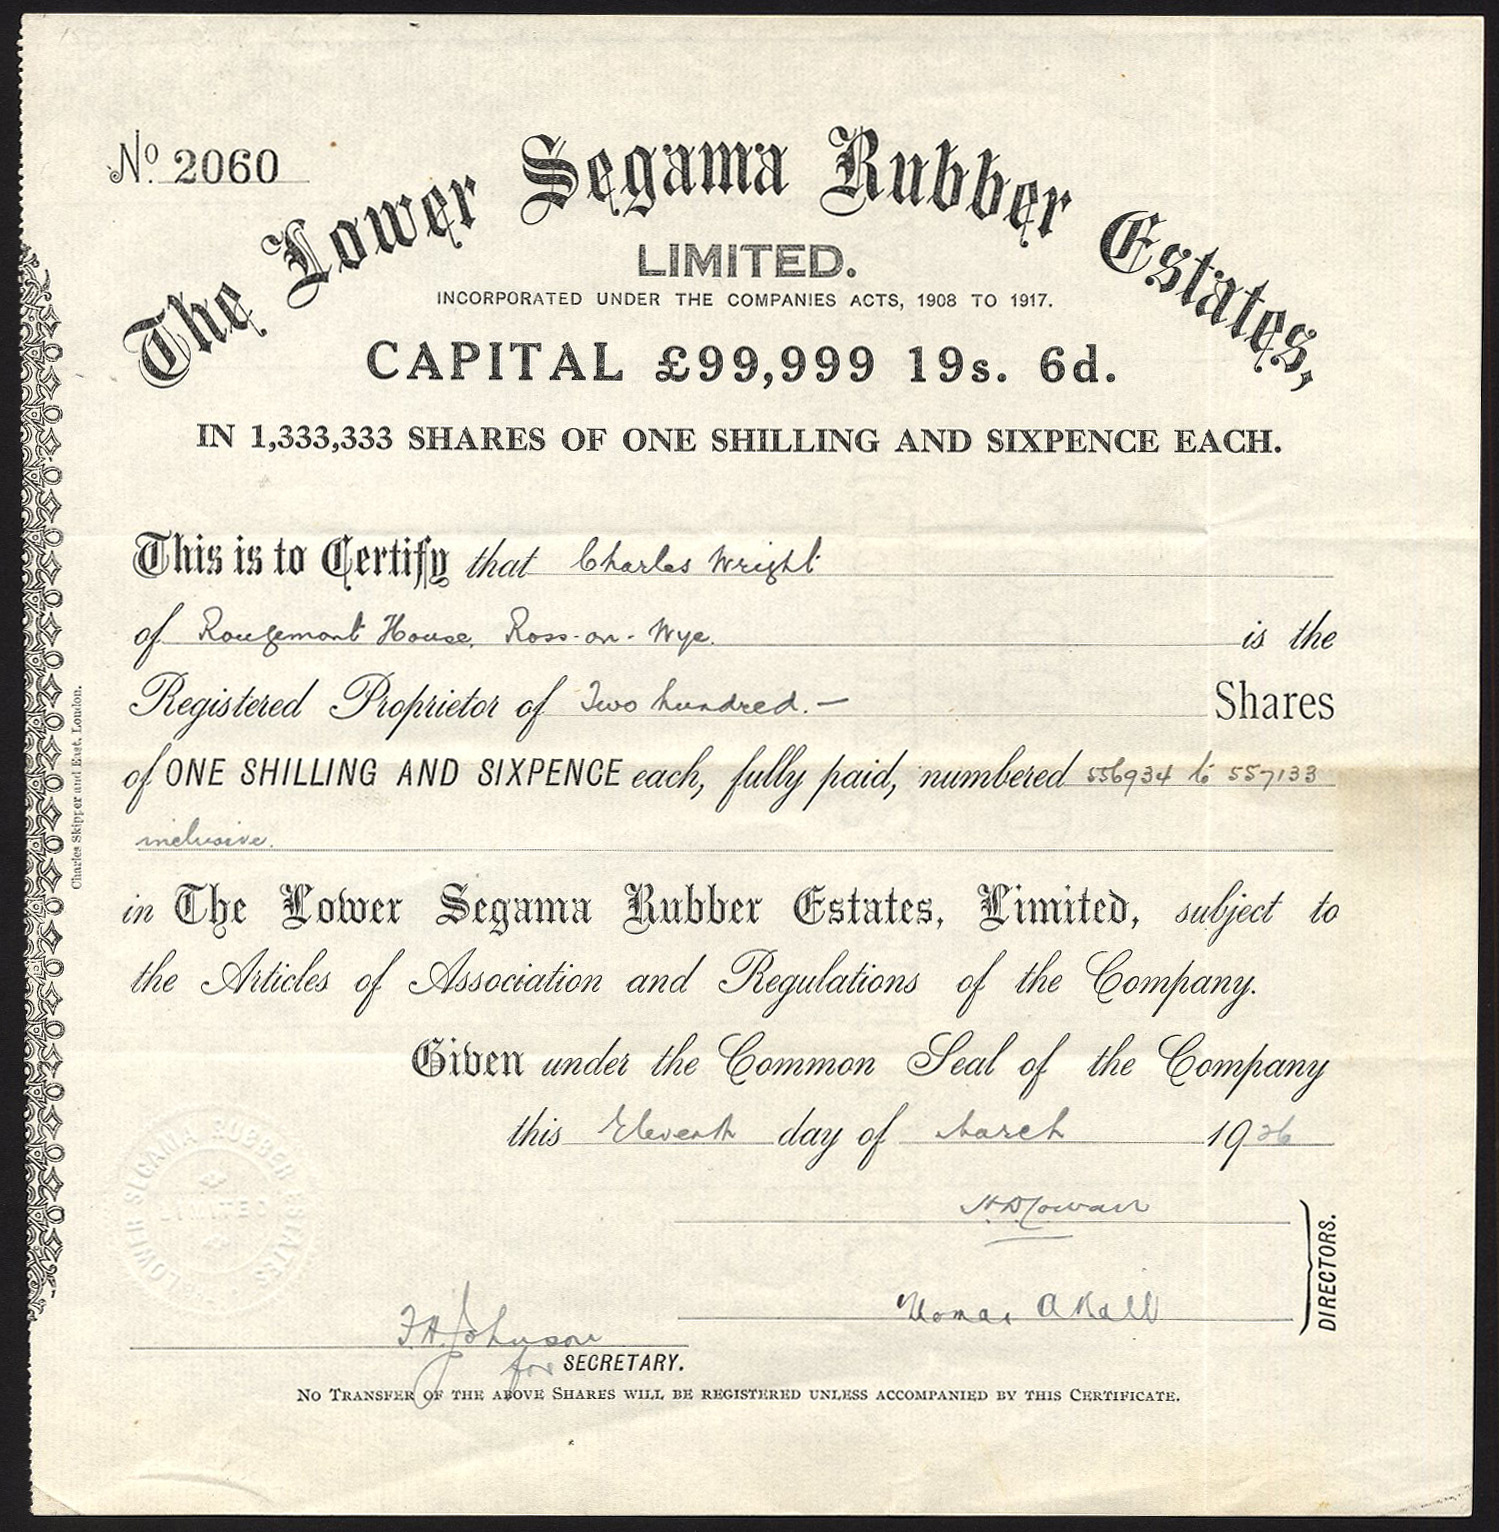 No. 2060
The Lower Segama Rubber Estates,
LIMITED.
INCORPORATED UNDER THE COMPANIES ACTS, 1908 TO 1917.
CAPITAL £99,999 19s. 6d.
IN 1,333,333 SHARES OF ONE SHILLING AND SIXPENCE EACH.
This is to Certify that Charles Wright
of Rougemont House, Ross-on-Wye. is the
Registered Proprietor of Two hundred.— Shares
of ONE SHILLING AND SIXPENCE each, fully paid, numbered 556934 to 557133
inclusive.
in The Lower Segama Rubber Estates, Limited, subject to
the Articles of Association and Regulations of the Company.
Given under the Common Seal of the Company
this Eleventh day of March 1926
LOWER SEGAMA RUBBER ESTATES
LIMITED
Thomas A Hall
DIRECTORS.
F.H. Johnson
for SECRETARY.
NO TRANSFER OF THE ABOVE SHARES WILL BE REGISTERED UNLESS ACCOMPANIED BY THIS CERTIFICATE.
Charles Skipper and East, London.